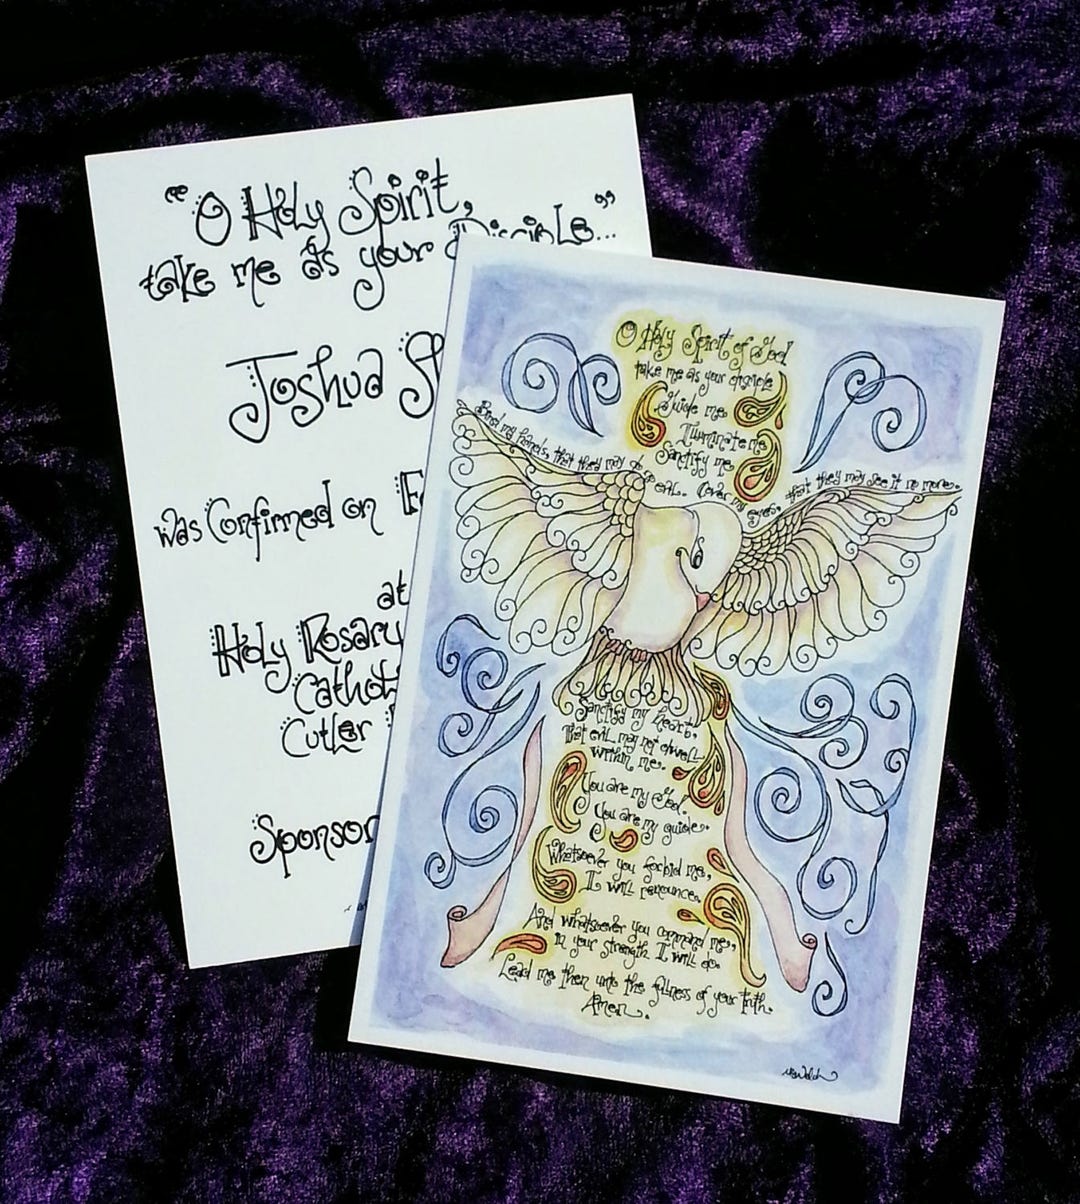 “O Holy Spirit,
take me as your Disciple...”
Joshua
was Confirmed on
at
Holy Rosary
Catholi
Cutler
Sponsor
O Holy Spirit of God
take me as your disciple
Guide me
Illuminate me
Sanctify me
Bind my hands, that they may do no evil. Cover my eyes, that they may see it no more.
Sanctify my heart,
That evil may not dwell
within me.
You are my God.
You are my guide.
Whatsoever you forbid me,
I will renounce.
And whatsoever you command me,
in your strength I will do.
Lead me then unto the fullness of your truth.
Amen.